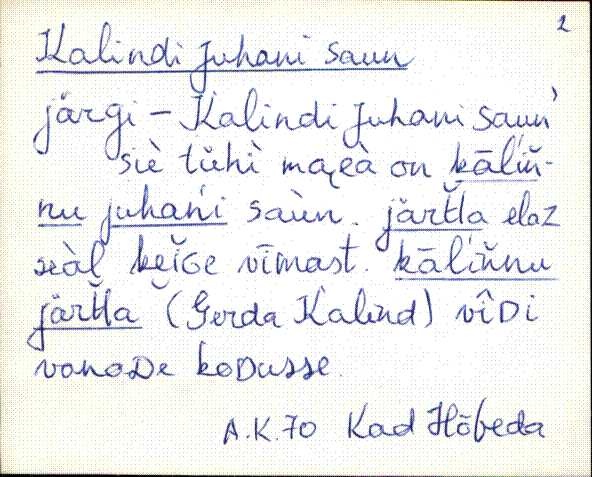 2
Kalindi Juhani saun
järgi – Kalindi Juhani saun
siè tǜhì maɛà on kāliň-
nu juhańi saùn. järťťa elaz
seàl keiGe vīmast. kāliňnu
järťťa (Gerda Kalind) vîDi
vanaDe koDusse.
A.K. 70 Kad Hõbeda